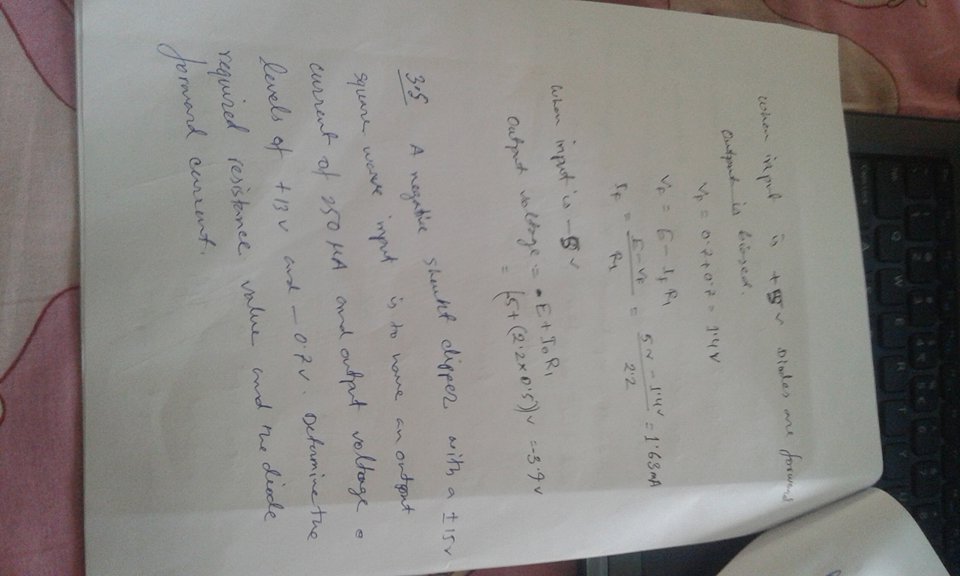 When input is +5v Diodes are forward
Output is biased.
VF = 0.7+0.7 = 1.4v
VF = E - IF R1
IF = E-VF / R1 = 5v - 1.4v / 2.2 = 1.63mA
When input is -5v
Output voltage = -E + I0R1
= (-5+(2.2×0.5))v = -3.9v
3.5 A negative shunt clipper with a ±15v
square wave input is to have an output
current of 250 µA and output voltage
levels of +13v and -0.7v. Determine the
required resistance value and the diode
forward current.